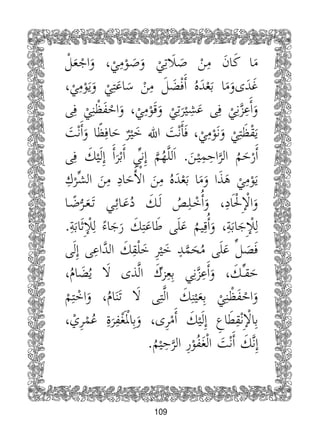 مَا كَانَ مِنْ صَلَاتِيْ وَصَوْمِيْ، وَاجْعَلْ
غَدَىوَمَا بَعْدَهُ أَفْضَلَ مِنْ سَاعَتِيْ وَيَوْمِيْ،
وَأَعِزَّنِيْ فِى عَشِيْرَتِيْ وَقَوْمِيْ، وَاحْفَظْنِيْ فِى
يَقْظَتِيْ وَنَوْمِيْ، فَأَنْتَ اللهُ خَيْرٌ حَافِظًا وَأَنْتَ
أَرْحَمُ الرَّاحِمِيْنَ. اَللَّهُمَّ إِنِّى أَبْرَأُ إِلَيْكَ فِى
يَوْمِيْ هَذَا وَمَا بَعْدَهُ مِنَ الْأَحَادِ مِنَ الشِّرْكِ
وَالْإِلْحَادِ، وَأُخْلِصُ لَكَ دُعَائِى تَعَرُّضًا
لِلْإِجَابَةِ، وَأُقِيمُ عَلَى طَاعَتِكَ رَجَاءً لِلْإِثَابَةِ.
فَصَلِّ عَلَى مُحَمَّدٍ خَيْرِ خَلْقِكَ الدَّاعِى إِلَى
حَقِّكَ، وَأَعِزَّنِي بِعِزِّكَ الَّذِى لَا يُضَامُ،
وَاحْفَظْنِيْ بِعَيْنِكَ الَّتِى لَا تَنَامُ، وَاخْتِمْ
بِالْإِنْقِطَاعِ إِلَيْكَ أَمْرِى، وَبِالْمَغْفِرَةِ عُمْرِيْ،
إِنَّكَ أَنْتَ الْغَفُوْرُ الرَّحِيْمُ.
109